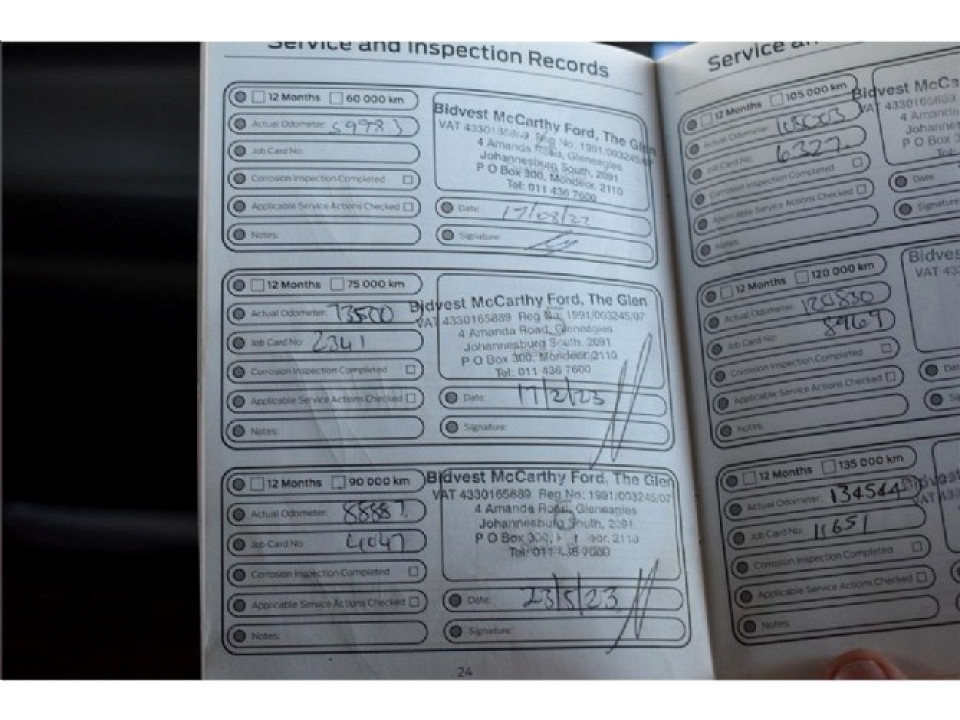 Service and Inspection Records
12 Months 60 000 km
Actual Odometer: 59983
Job Card No:
Corrosion Inspection Completed
Applicable Service Actions Checked
Notes:
Bidvest McCarthy Ford, The Glen
VAT Reg No: 1991/003245/07
4 Amanda Road, Gleneagles
Johannesburg South, 2091
P O Box 300, Mondeor, 2110
Tel: 011 436 7600
Date: 17/08/22
Signature:
12 Months 75 000 km
Actual Odometer: 73500
Job Card No: 2341
Corrosion Inspection Completed
Applicable Service Actions Checked
Notes:
Bidvest McCarthy Ford, The Glen
VAT 4330165889 Reg No: 1991/003245/07
4 Amanda Road, Gleneagles
Johannesburg South, 2091
P O Box 300, Mondeor, 2110
Tel: 011 436 7600
Date: 17/2/23
Signature:
12 Months 90 000 km
Actual Odometer: 88887
Job Card No: 4047
Corrosion Inspection Completed
Applicable Service Actions Checked
Notes:
Bidvest McCarthy Ford, The Glen
VAT 4330165889 Reg No: 1991/003245/07
4 Amanda Road, Gleneagles
Johannesburg South, 2091
P O Box 300, 2110
Tel: 011 436 7600
Date: 23/5/23
Signature:
24
Service
12 Months 105 000 km
Actual Odometer:
Job Card No: 6327
Corrosion Inspection Completed
Applicable Service Actions Checked
Notes:
Bidvest McCa
VAT 4330165889
4 Amanda
Johannesb
P O Bo
Date:
Signature
12 Months 120 000 km
Actual Odometer: 120830
Job Card No: 8969
Corrosion Inspection Completed
Applicable Service Actions Checked
Notes:
Bidves
VAT 433
12 Months 135 000 km
Actual Odometer: 134544
Job Card No: 11651
Corrosion Inspection Completed
Applicable Service Actions Checked
Notes: